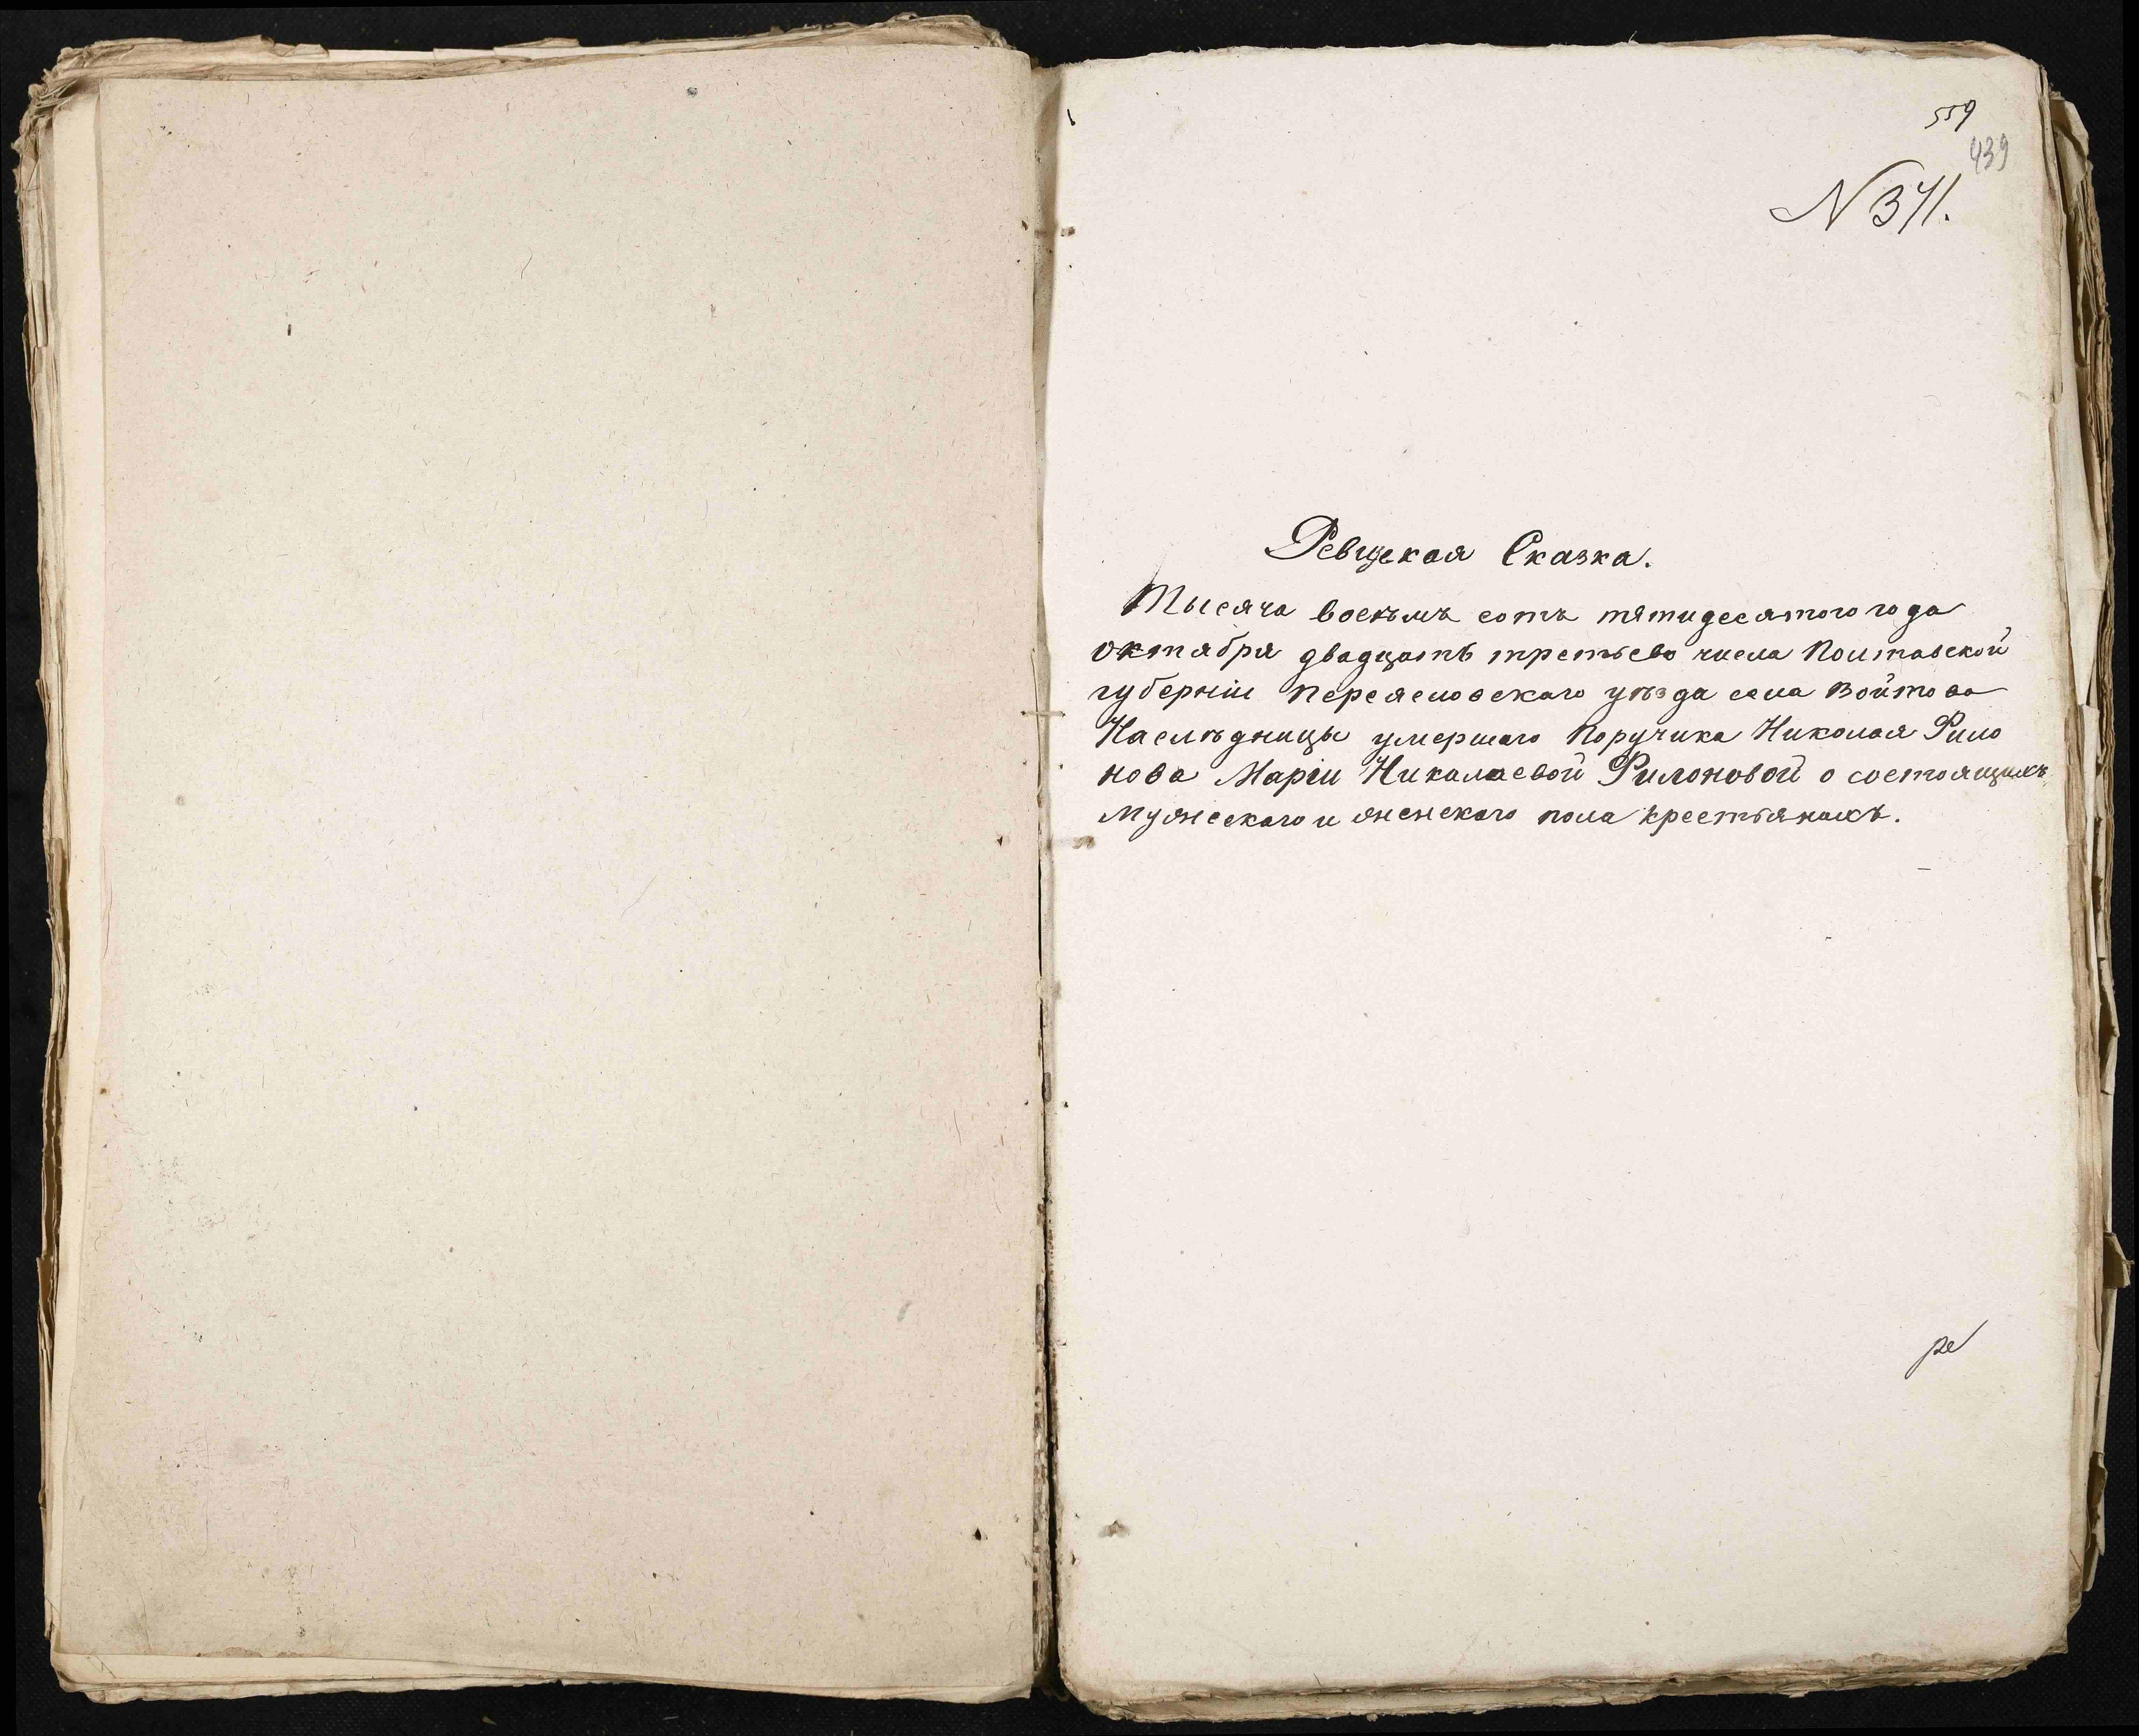 559
439
N 371.
Ревизская Сказка.
Тысяча восемъ сотъ пятидесятого года
октября двадцать третьево числа Полтавской
губерніи Переясловскаго уѣзда села Войтова
Наслѣдницы умершаго Поручика Николая Фило
нова Маріи Николаевой Филоновой о состоящихъ
Мужескаго и женскаго пола крестьянахъ.